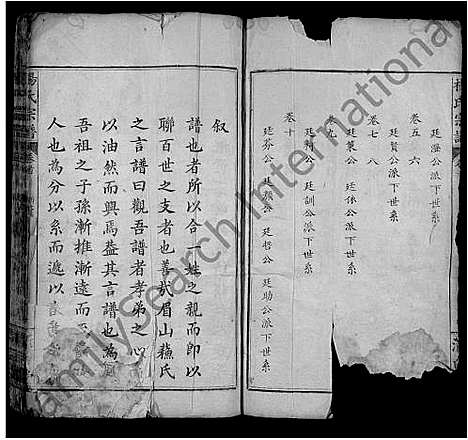 楊氏宗譜
廷灤公派下世系
卷五 六
廷賢公派下世系
卷七 八
廷策公 廷俻公派下世系
卷九
廷科公 廷訓公派下世系
卷十
廷芬公 廷顯公 廷哲公 廷助公派下世系
叙
譜也者所以合一姓之親而即以
聯百世之支者也善哉眉山蘓氏
之言譜曰觀吾譜者孝弟之心
以油然而興焉益其言譜也為
吾祖之子孫漸推漸遠而至
人也為分以系而遞以
楊氏宗譜 卷首
FamilySearch International